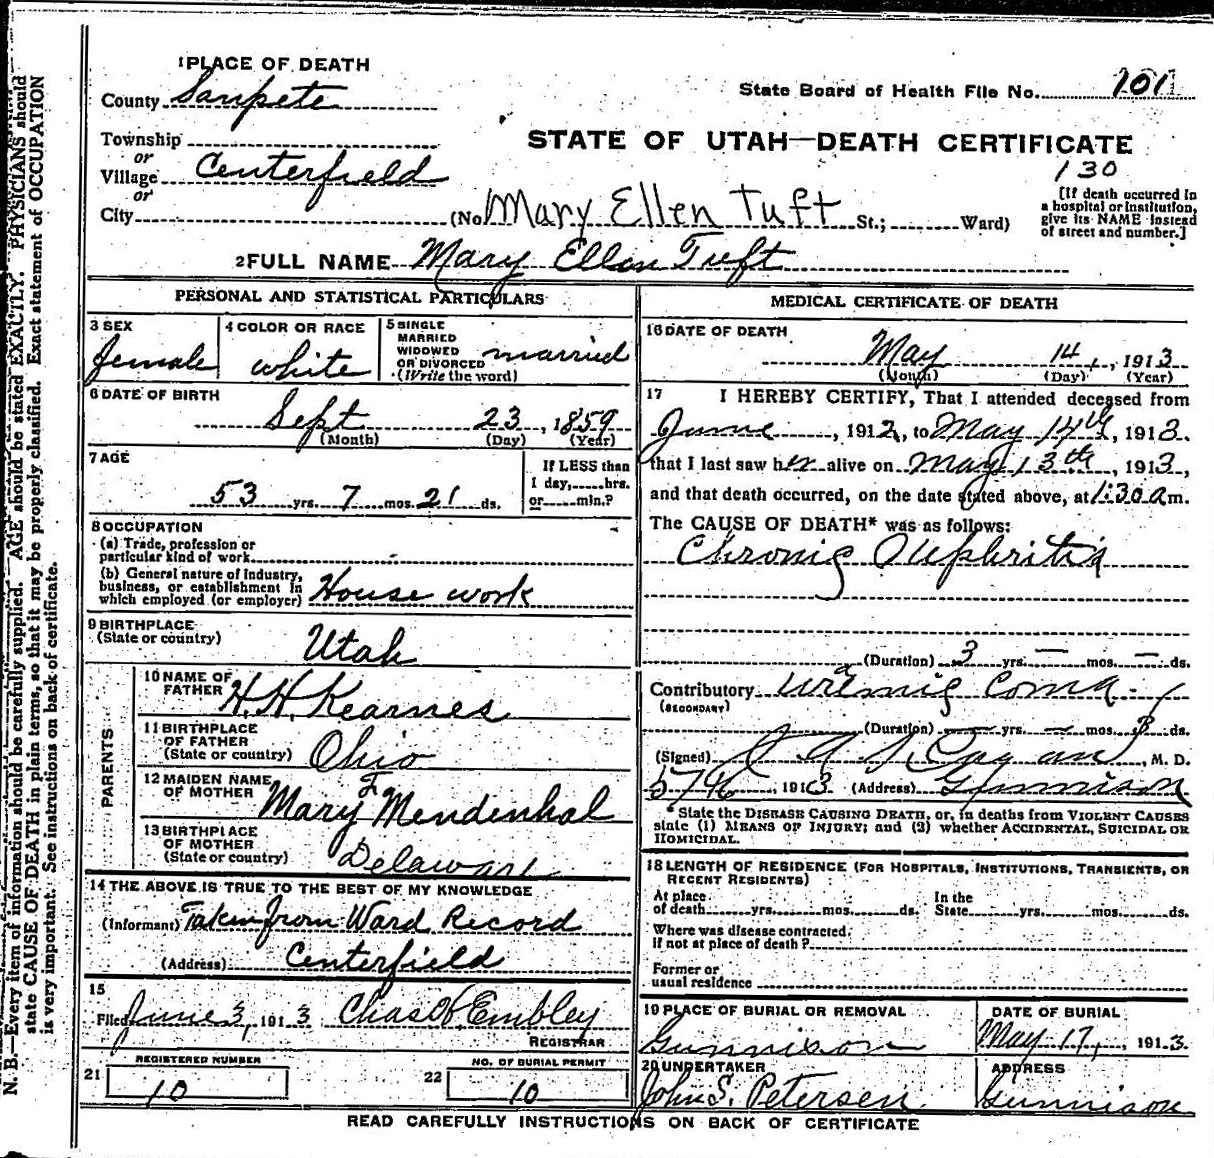 1 PLACE OF DEATH
County Sanpete
State Board of Health File No. 101
Township
or
Village Centerfield
or
City
STATE OF UTAH—DEATH CERTIFICATE
130
[If death occurred in a hospital or institution, give its NAME instead of street and number.]
(No. Mary Ellen Tuft St.; Ward)
2 FULL NAME Mary Ellen Tuft
PERSONAL AND STATISTICAL PARTICULARS
3 SEX
female
4 COLOR OR RACE
white
5 SINGLE
MARRIED
WIDOWED
OR DIVORCED
(Write the word)
married
6 DATE OF BIRTH
Sept 23, 1859
(Month) (Day) (Year)
7 AGE
53 yrs. 7 mos. 21 ds.
If LESS than
1 day, hrs.
or min.?
8 OCCUPATION
(a) Trade, profession or
particular kind of work
(b) General nature of industry,
business, or establishment in
which employed (or employer) House work
9 BIRTHPLACE
(State or country)
Utah
PARENTS
10 NAME OF
FATHER
H. H. Kearnes
11 BIRTHPLACE
OF FATHER
(State or country)
Ohio
12 MAIDEN NAME
OF MOTHER
Mary F Mendenhal
13 BIRTHPLACE
OF MOTHER
(State or country)
Delaware
14 THE ABOVE IS TRUE TO THE BEST OF MY KNOWLEDGE
(Informant) Taken from Ward Record
(Address) Centerfield
15
Filed June 3, 1913 Chas H. Embley
REGISTRAR
REGISTERED NUMBER
21 10
NO. OF BURIAL PERMIT
22 10
MEDICAL CERTIFICATE OF DEATH
16 DATE OF DEATH
May 14, 1913
(Month) (Day) (Year)
17 I HEREBY CERTIFY, That I attended deceased from
June, 1912, to May 14th, 1913.
that I last saw her alive on May 13th, 1913,
and that death occurred, on the date stated above, at 1:30 a m.
The CAUSE OF DEATH* was as follows:
Chronic Nephritis
(Duration) 3 yrs. — mos. — ds.
Contributory uraemic Coma
(SECONDARY)
(Duration) — yrs. — mos. 3 ds.
(Signed) M. D.
1913 (Address) Gunnison
*State the DISEASE CAUSING DEATH, or, in deaths from VIOLENT CAUSES
state (1) MEANS OF INJURY; and (2) whether ACCIDENTAL, SUICIDAL OR
HOMICIDAL.
18 LENGTH OF RESIDENCE (FOR HOSPITALS, INSTITUTIONS, TRANSIENTS, OR
RECENT RESIDENTS)
At place
of death yrs. mos. ds.
In the
State yrs. mos. ds.
Where was disease contracted,
if not at place of death?
Former or
usual residence
19 PLACE OF BURIAL OR REMOVAL
Gunnison
DATE OF BURIAL
May 17, 1913
20 UNDERTAKER
John S. Petersen
ADDRESS
Gunnison
READ CAREFULLY INSTRUCTIONS ON BACK OF CERTIFICATE
N. B.—Every item of information should be carefully supplied. AGE should be stated EXACTLY. PHYSICIANS should
state CAUSE OF DEATH in plain terms, so that it may be properly classified. Exact statement of OCCUPATION
is very important. See instructions on back of certificate.